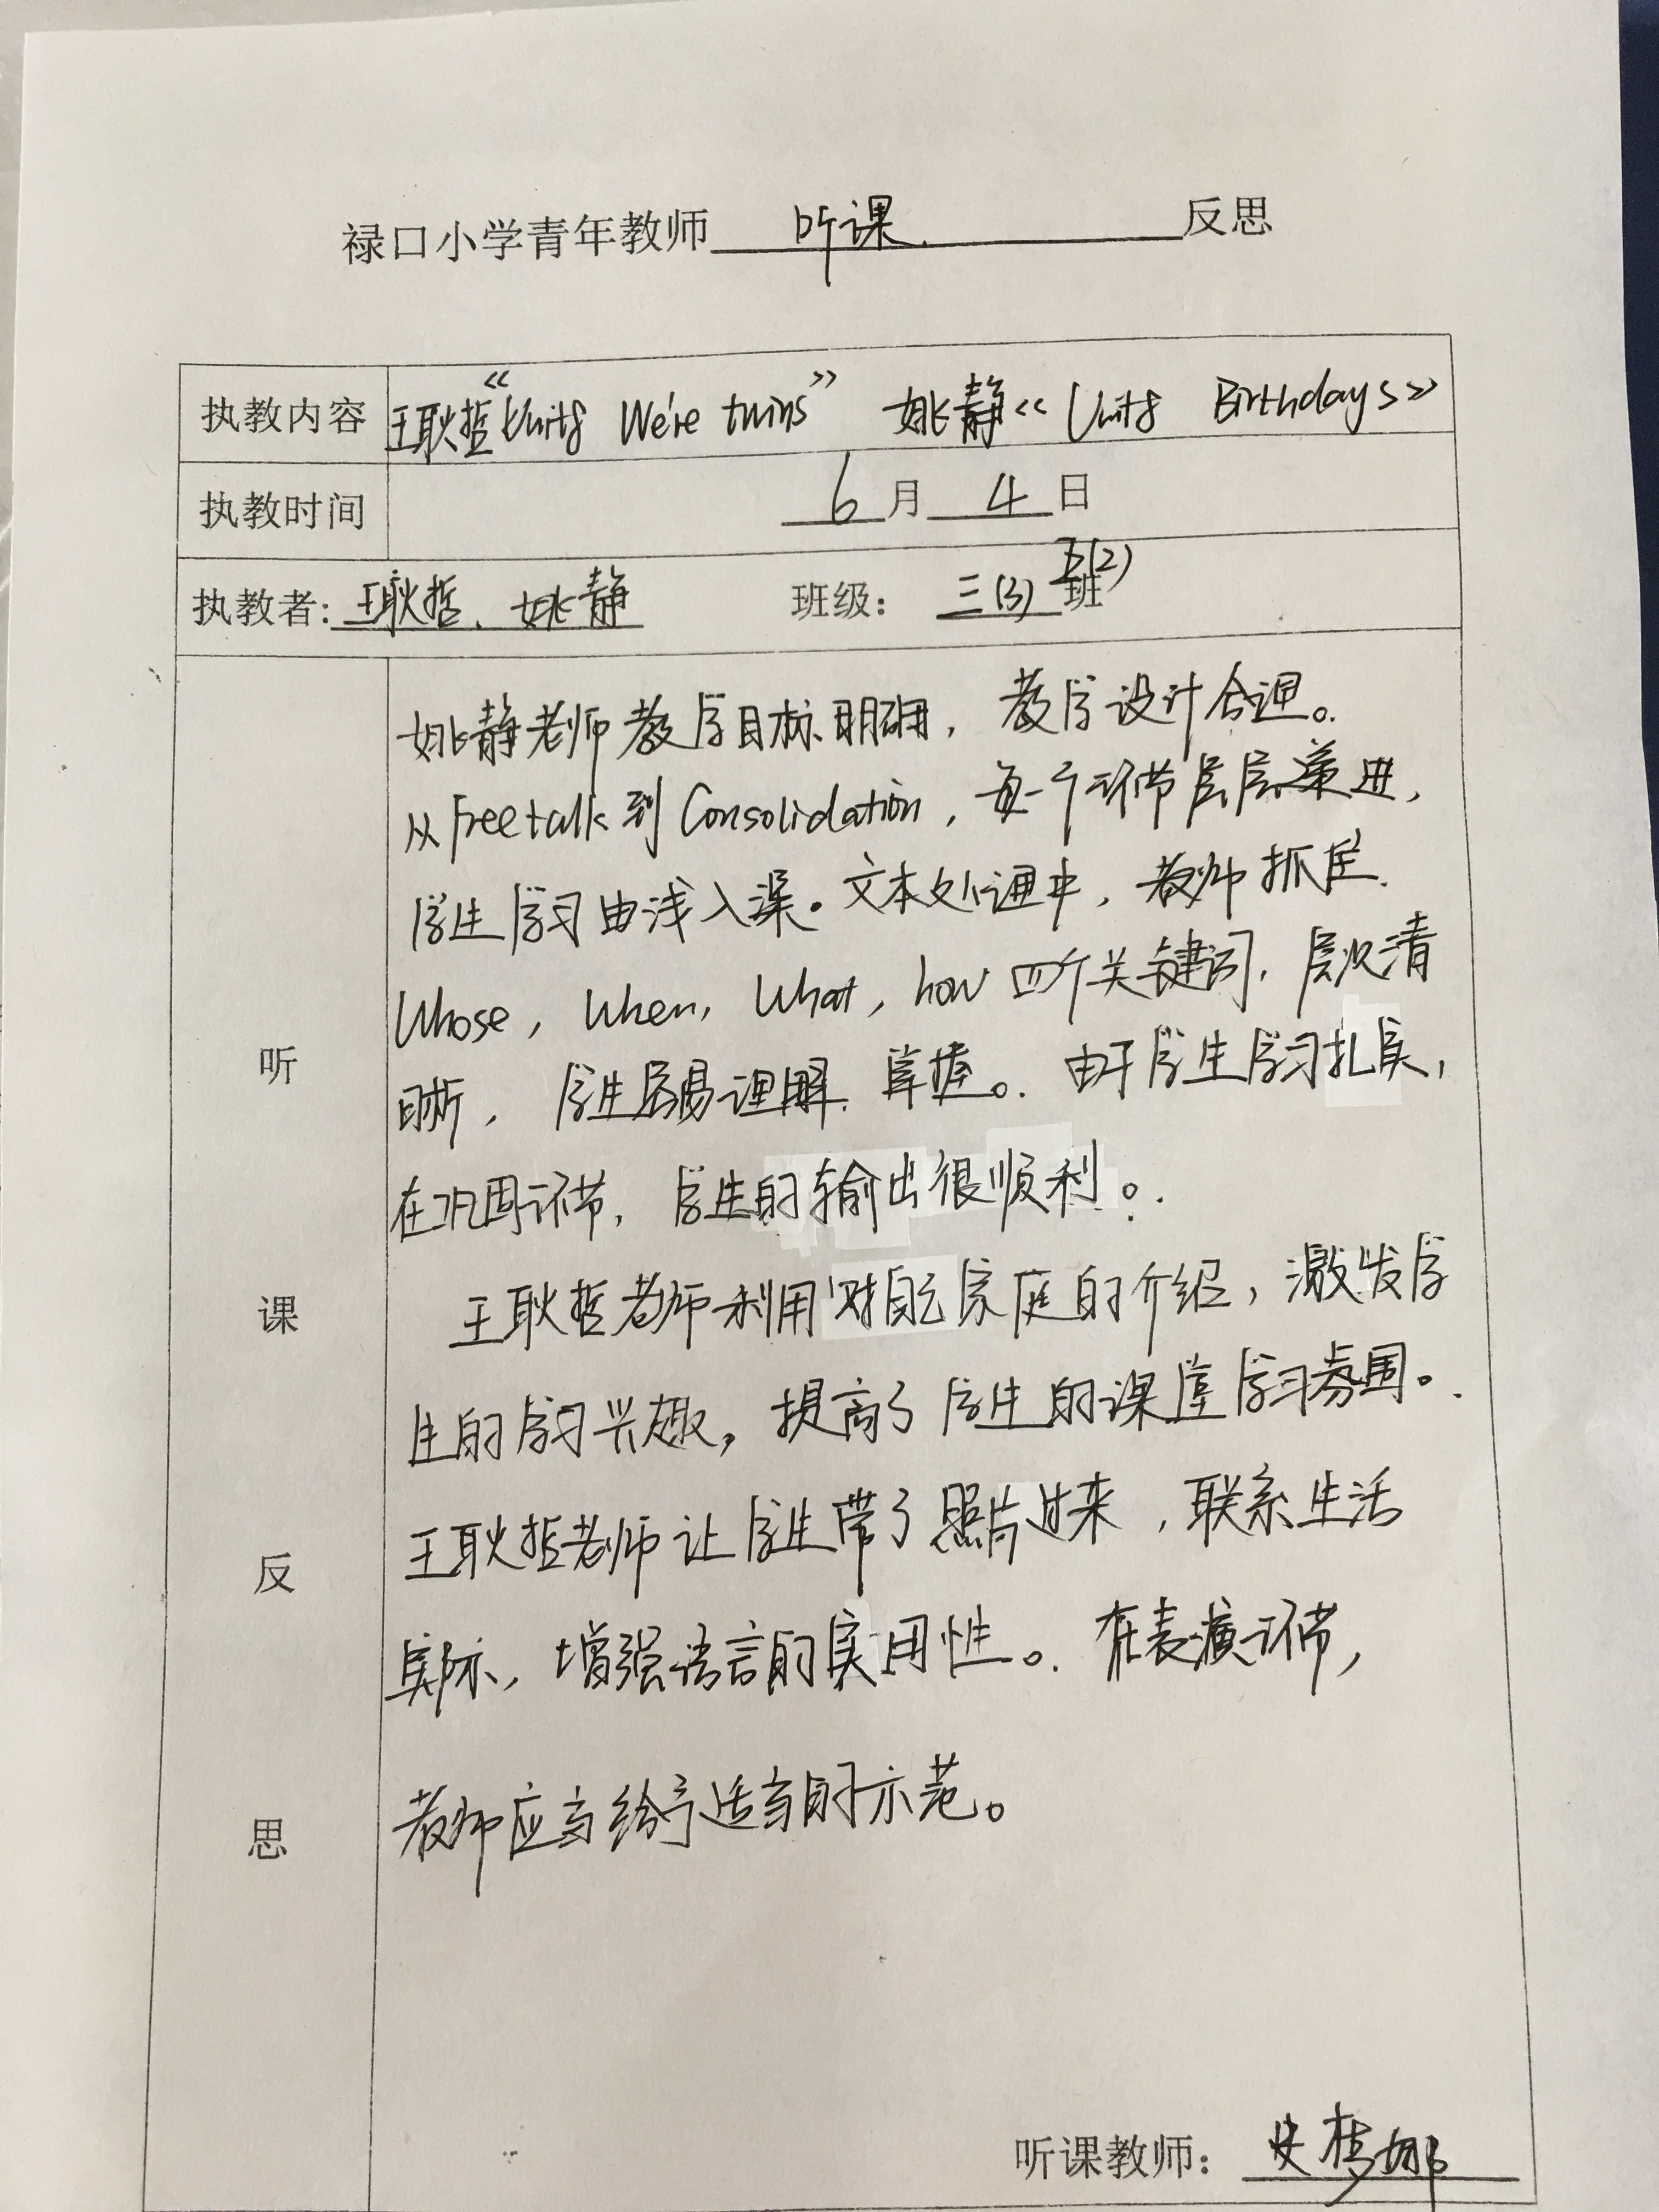 禄口小学青年教师 听课 反思
执教内容 王耿哲《Unit8 We're twins》 姚静《Unit8 Birthdays》
执教时间 6月4日
执教者: 王耿哲、姚静 班级: 三(3) 五(2) 班
听课反思
姚静老师教学目标明确，教学设计合理。
从Free talk到Consolidation，每一个环节层层递进，
学生学习由浅入深。文本处理中，教师抓住
Whose, When, What, how 四个关键词，层次清
晰，学生容易理解、掌握。由于学生学习扎实，
在巩固环节，学生的输出很顺利。
王耿哲老师利用对自己家庭的介绍，激发学
生的学习兴趣，提高了学生的课堂学习氛围。
王耿哲老师让学生带了照片过来，联系生活
实际，增强语言的实用性。在表演环节，
教师应当给予适当的示范。
听课教师: 史梦娜